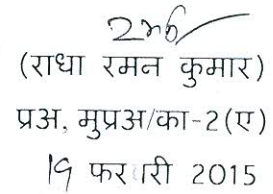 (राधा रमन कुमार)
प्रअ, मुप्रअ/का-2(ए)
19 फरवरी 2015